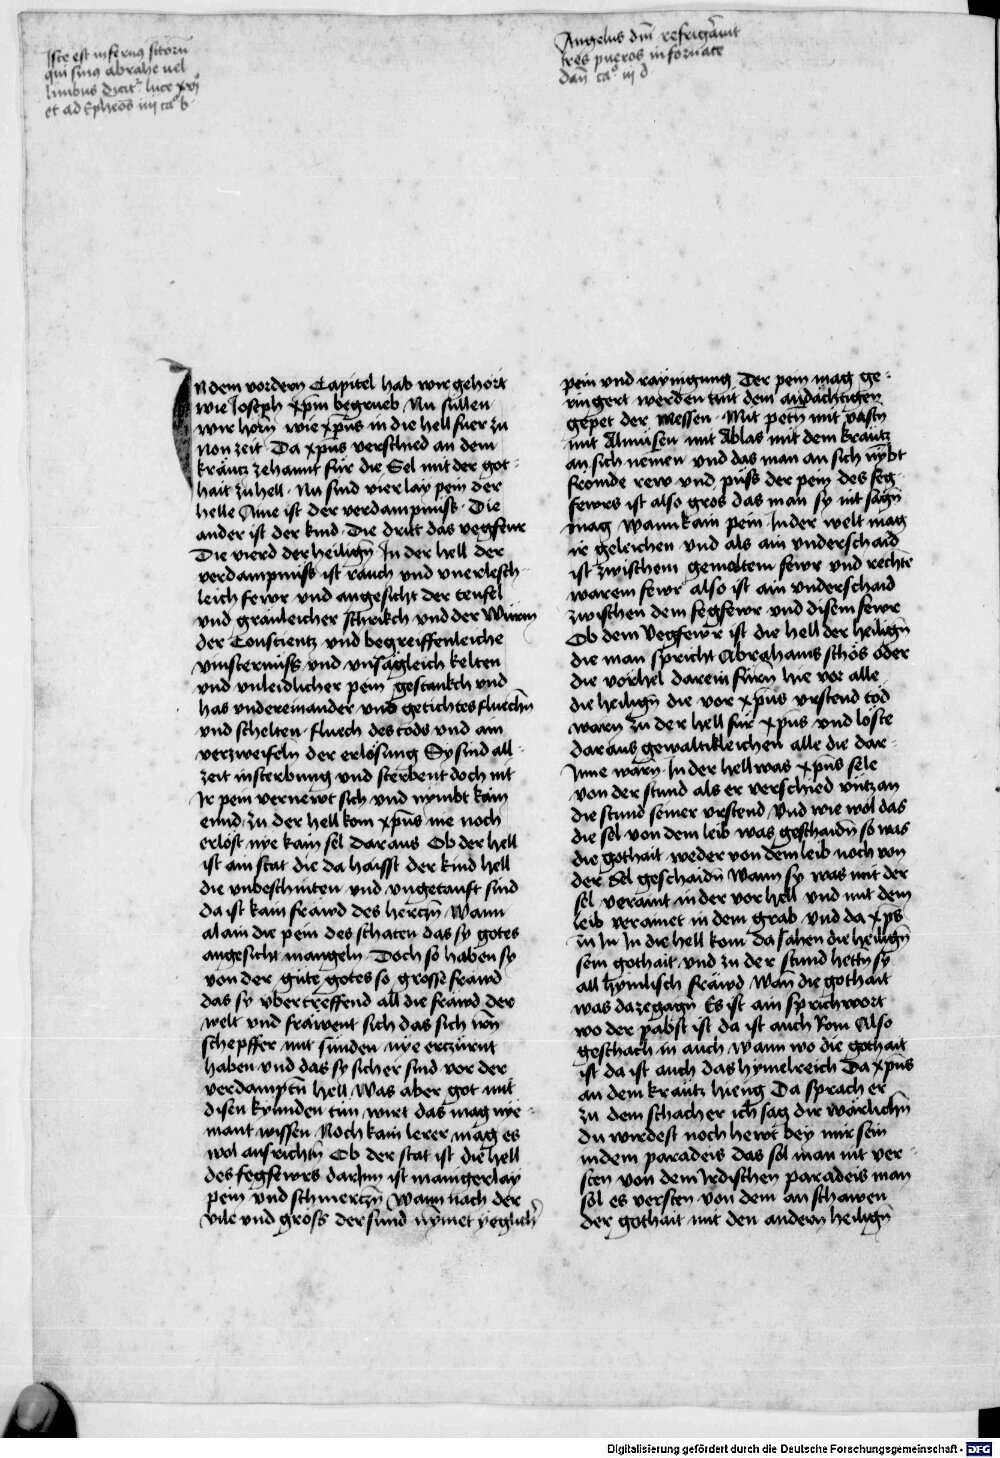 Iste est infernus sctorum
qui sinus abrahe vel
limbus dicit luce xvi
et ad Ephesos iiii ca b
Angelus dni refrigavit
tres pueros in fornace
dan ca iii d
In dem vordern Capitel hab wir gehört
wie Joseph xpm begrueb Nu süllen
wir hörn wie xpus in die hell fuer zu
non zeit Da xpus verschied an dem
kräutz zehannt für die Sel mit der got-
hait zu hell. Nu sind vier lay pein der
helle Aine ist der verdampnuss. Die
ander ist der kind. Die dritt das vegfewr
Die vierd der heilign In der hell der
verdampnüss ist rauch und unerlesch-
leich fewr und angesicht der teufel
und gräuleicher schrikch und der Würm
der Conscientz und begreiffenleiche
vinsternüss und unsägleich kelten
und unleidlicher pein gestankch und
has undereinander und getichtes fluechn
und schelten. fluech des tods und ain
verzweifeln der erlösung Sy sind all-
zeit in sterbung und sterbent doch nit
Ir pein vernewt sich und nymbt kain
ennd. zu der hell kom xpus nie noch
erlost nye kain sel dar aus Ob der hell
ist ain stat die da haisst der kind hell
die unbeschniten und ungetauft sind
da ist kain fräwd des herczn Wann
al ain die pein des schaten das sy gotes
angesicht mangeln. Doch so haben sy
von der güte gotes so grosse fräwd
das sy übertreffend all die fräwd der
welt und fräwent sich das sich irn
schepffer mit sünden nye erczürnt
haben und das sy sicher sind vor der
verdamptn hell. Was aber got mit
disen kynnden tün wirt das mag nye-
mant wissen Noch kain lerer mag es
wol ausrichtn Ob der stat ist die hell
des fegfewrs dar Inn ist manigerlay
pein und schmerczn Wann nach der
vile und gröss der sünd nymet yeglicher
pein und raynigung Der pein mag ge-
ringert werden mit dem andächtigen
gepet der Messen. Mit petn mit vastn
mit Almüsen mit Ablas mit dem kräutz
an sich nemen und das man an sich nymbt
frömde rew und puss der pein des feg-
fewrs ist also gros das man sy nit sagn
mag Wann kain pein In der welt mag
ir geleichen und als ain underschaid
ist zwischem gemaltem fewr und rechte
warem fewr also ist ain underschaid
zwischen dem fegfewr und disem fewr
Ob dem Vegfewr ist die hell der heilign
die man spricht Abrahams schös oder
die vorhel darein fürn hie vor alle
die heilign die vor xpus urstend tod
warn zu der hell für xpus und löste
daraus gewaltikleichen alle die dar-
Inne wärn. In der hell was xpus sele
von der stund als er verschied üntz an
die stund seiner urstend Und wie wol das
die sel von dem leib was geschaidn so was
die gothait weder von dem leib noch von
der Sel geschaidn Wann sy was mit der
sel veraint in der vor hell und mit dem
leib verainet in dem grab und da xps
zu In In die hell kom da sahen die heilign
sein gothait und zu der stund hettn sy
all hymlisch fräwd Wan die gothait
was da zegagn Es ist ain sprichwort
wo der pabst ist da ist auch Rom Also
geschach in auch wann wo die gothait
ist da ist auch das hymelreich Da xpus
an dem kräutz hieng Da sprach er
zu dem schacher ich sag dir wärlichn
du wirdest noch hewt bey mir sein
in dem paradeis das sol man nit ver-
sten von dem Irdischen paradeis man
sol es versten von dem anschawen
der gothait mit den andern heilign
Digitalisierung gefördert durch die Deutsche Forschungsgemeinschaft - DFG